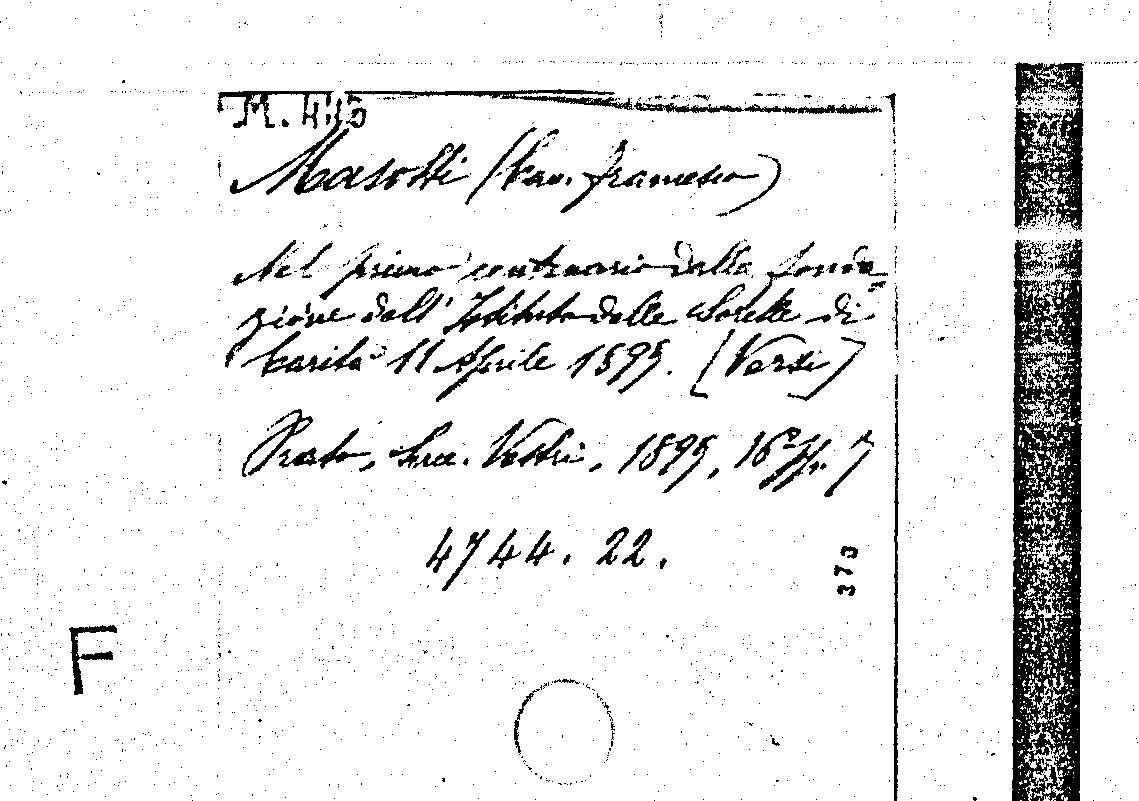 M. 445
Masotti (Can. Francesco)
Nel primo centenario dalla fonda=
zione dell' Istituto delle Sorelle di
Carità 11 Aprile 1899. [Versi]
Prato, Succ. Vestri, 1899, 16º pp. 7
4744. 22.
373
F